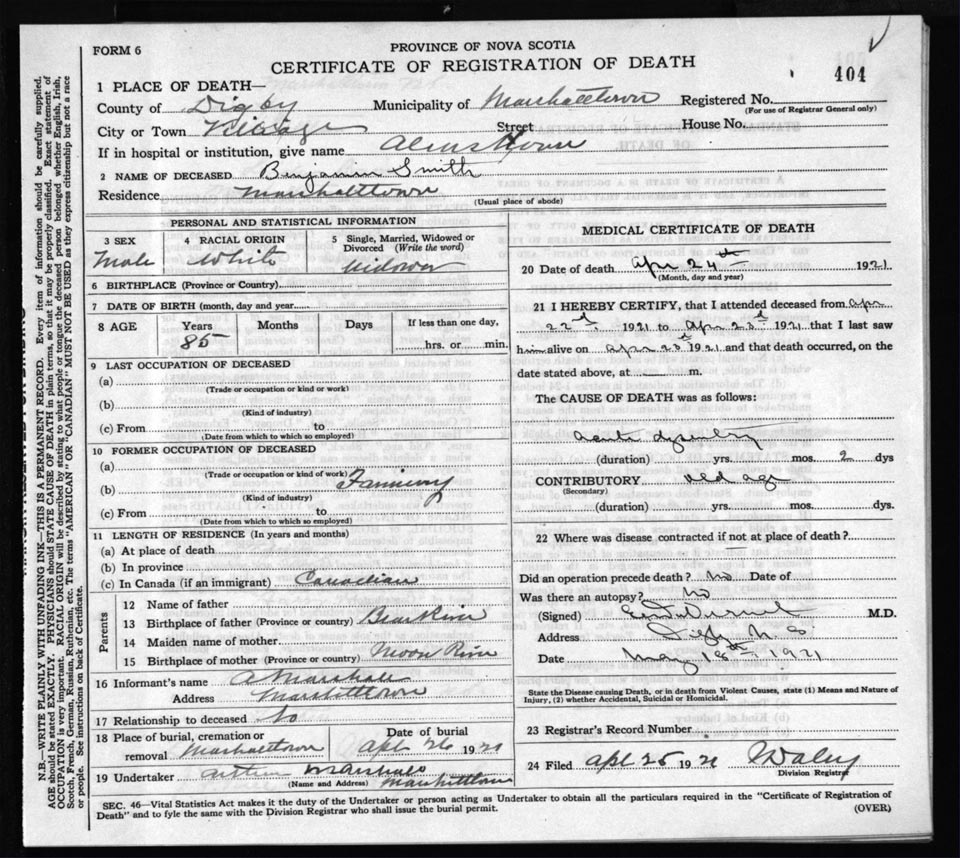 FORM 6
PROVINCE OF NOVA SCOTIA
CERTIFICATE OF REGISTRATION OF DEATH
404
1 PLACE OF DEATH—
County of Digby Municipality of Marshalltown Registered No.
(For use of Registrar General only)
City or Town Village Street House No.
If in hospital or institution, give name Alms House
2 NAME OF DECEASED Benjamin Smith
Residence Marshalltown
(Usual place of abode)
PERSONAL AND STATISTICAL INFORMATION
3 SEX 4 RACIAL ORIGIN 5 Single, Married, Widowed or Divorced (Write the word)
Male White Widower
6 BIRTHPLACE (Province or Country)
7 DATE OF BIRTH (month, day and year)
8 AGE Years Months Days If less than one day,
85 hrs. or min.
9 LAST OCCUPATION OF DECEASED
(a)
(Trade or occupation or kind or work)
(b)
(Kind of industry)
(c) From to
(Date from which to which so employed)
10 FORMER OCCUPATION OF DECEASED
(a)
(Trade or occupation or kind of work)
(b) Farming
(Kind of industry)
(c) From to
(Date from which to which so employed)
11 LENGTH OF RESIDENCE (In years and months)
(a) At place of death
(b) In province
(c) In Canada (if an immigrant) Canadian
Parents
12 Name of father
13 Birthplace of father (Province or country) Bear River
14 Maiden name of mother
15 Birthplace of mother (Province or country) River
16 Informant's name A Marshall
Address Marshalltown
17 Relationship to deceased No
18 Place of burial, cremation or removal Marshalltown
Date of burial Apl 26 1921
19 Undertaker Marshall
(Name and Address) Marshalltown
MEDICAL CERTIFICATE OF DEATH
20 Date of death Apr 24th 1921
(Month, day and year)
21 I HEREBY CERTIFY, that I attended deceased from Apr
22d 1921 to Apr 23d 1921 that I last saw
him alive on Apr 23d 1921 and that death occurred, on the
date stated above, at — m.
The CAUSE OF DEATH was as follows:
Acute dysentery
(duration) yrs. mos. 2 dys
CONTRIBUTORY old age
(Secondary)
(duration) yrs. mos. dys.
22 Where was disease contracted if not at place of death?
Did an operation precede death? No Date of
Was there an autopsy? No
(Signed) M.D.
Address Digby N.S.
Date May 18th 1921
State the Disease causing Death, or in death from Violent Causes, state (1) Means and Nature of
Injury, (2) whether Accidental, Suicidal or Homicidal.
23 Registrar's Record Number
24 Filed Apl 25 1921
Division Registrar
SEC. 46—Vital Statistics Act makes it the duty of the Undertaker or person acting as Undertaker to obtain all the particulars required in the "Certificate of Registration of
Death" and to fyle the same with the Division Registrar who shall issue the burial permit.
(OVER)
N.B.—WRITE PLAINLY WITH UNFADING INK—THIS IS A PERMANENT RECORD. Every item of information should be carefully supplied.
AGE should be stated EXACTLY. PHYSICIANS should STATE CAUSE OF DEATH in plain terms, so that it may be properly classified. Exact statement of
OCCUPATION is very important. RACIAL ORIGIN will be described by stating to what people or tongue the deceased person belonged whether English, Irish,
Scotch, French, German, Russian, Ruthenian, etc. The terms "AMERICAN" OR "CANADIAN" MUST NOT BE USED as they express citizenship but not a race
or people. See instructions on back of Certificate.